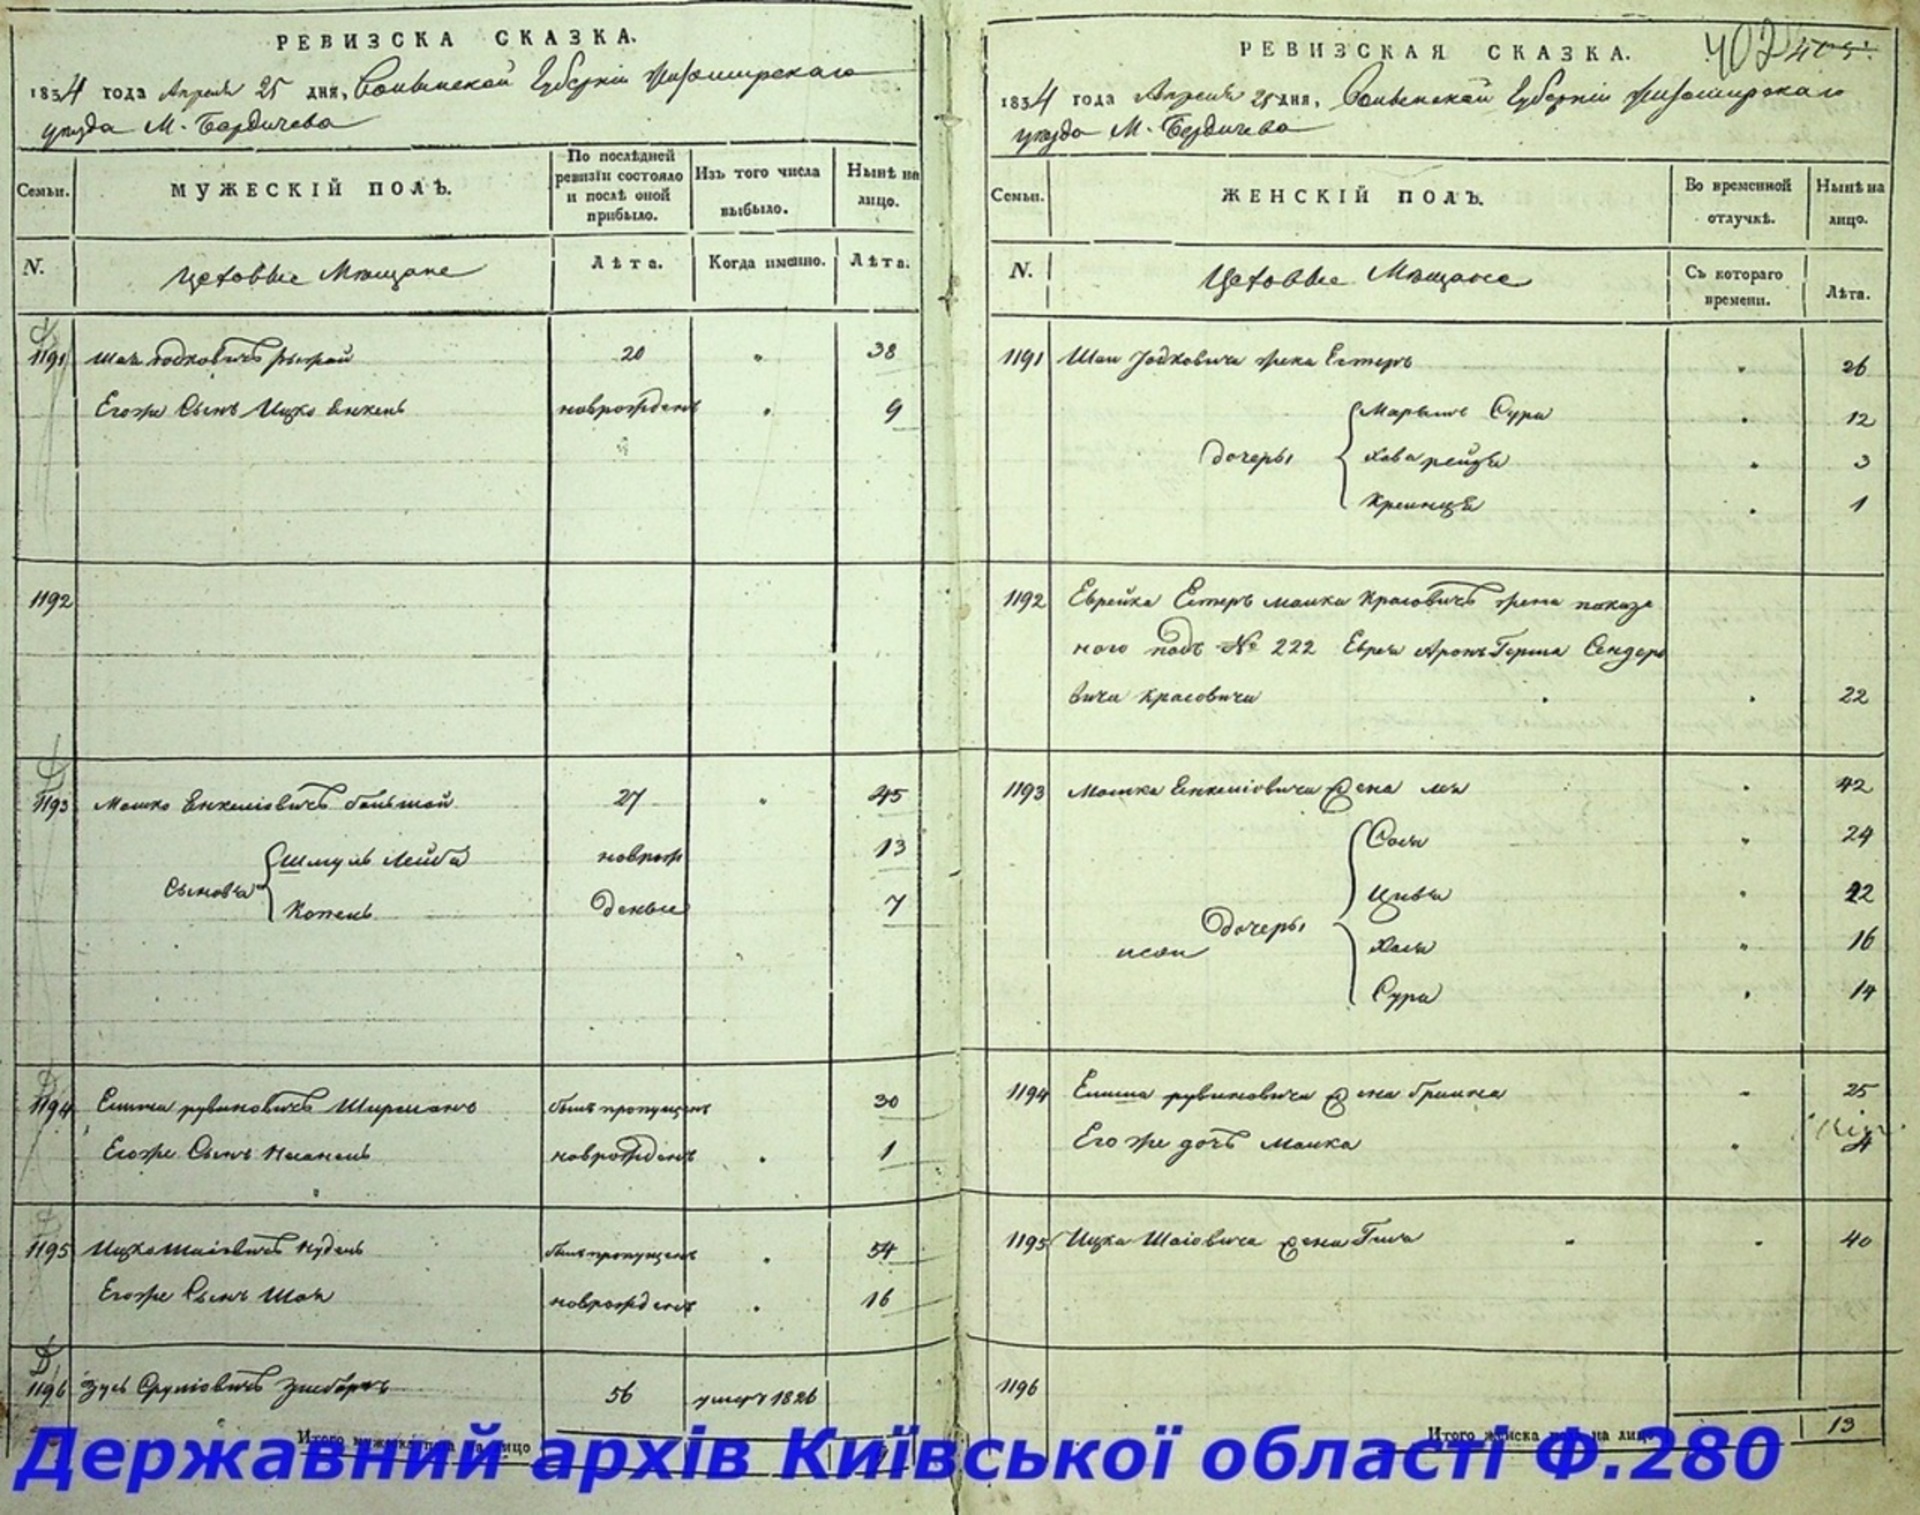 РЕВИЗСКА СКАЗКА.
1834 года Апреля 25 дня, Волынской Губерніи Житомирскаго
уезда М. Бердичева
Семьи.
МУЖЕСКІЙ ПОЛЪ.
По послѣдней ревизіи состояло и послѣ оной прибыло.
Изъ того числа выбыло.
Нынѣ на лицо.
N.
Цеховые Мещане
Лѣта.
Когда именно.
Лѣта.
1191 Шая Іодковичъ рыжой 20 " 38
Егоже Сынъ Ицко Янкель новрожденъ " 9
1192
1193 Мошко Янкеліовичъ большой 27 " 45
Сыновья
Шмуль Лейба новрож 13
Копель деные 7
1194 рувиновичъ Ширманъ былъ пропущенъ 30
Егоже Сынъ новрожденъ " 1
1195 Ицко Шаіовичъ Нудель былъ пропущенъ " 54
Егоже Сынъ Шая новрожденъ " 16
1196 Зусь Сруліовичъ 56 умеръ 1826
Итого мужеска пола на лицо
РЕВИЗСКАЯ СКАЗКА.
402
1834 года Апреля 25 дня, Волынской Губерніи Житомирскаго
уезда М. Бердичева
Семьи.
ЖЕНСКІЙ ПОЛЪ.
Во временной отлучкѣ.
Нынѣ на лицо.
N.
Цеховые Мещане
Съ котораго времени.
Лѣта.
1191 Шаи Іодковича жена Естеръ " 26
Дочеры
Марьямъ Сура " 12
Хава рейзя " 3
Креинця " 1
1192 Еврейка Естеръ малка Красовичъ жена показа
ного подъ № 222 Еврея Аронъ Герша Сендеро
вича Красовича " 22
1193 Мошка Янкеліовича жена лея " 42
Дочеры
Сося " 24
Цивья " 22
Хая " 16
Сура " 14
1194 рувиновича жена " 25
Его же дочъ малка " 4
1195 Ицка Шаіовича жена " 40
1196
Итого женска пола на лицо 13
Державний архів Київської області Ф.280